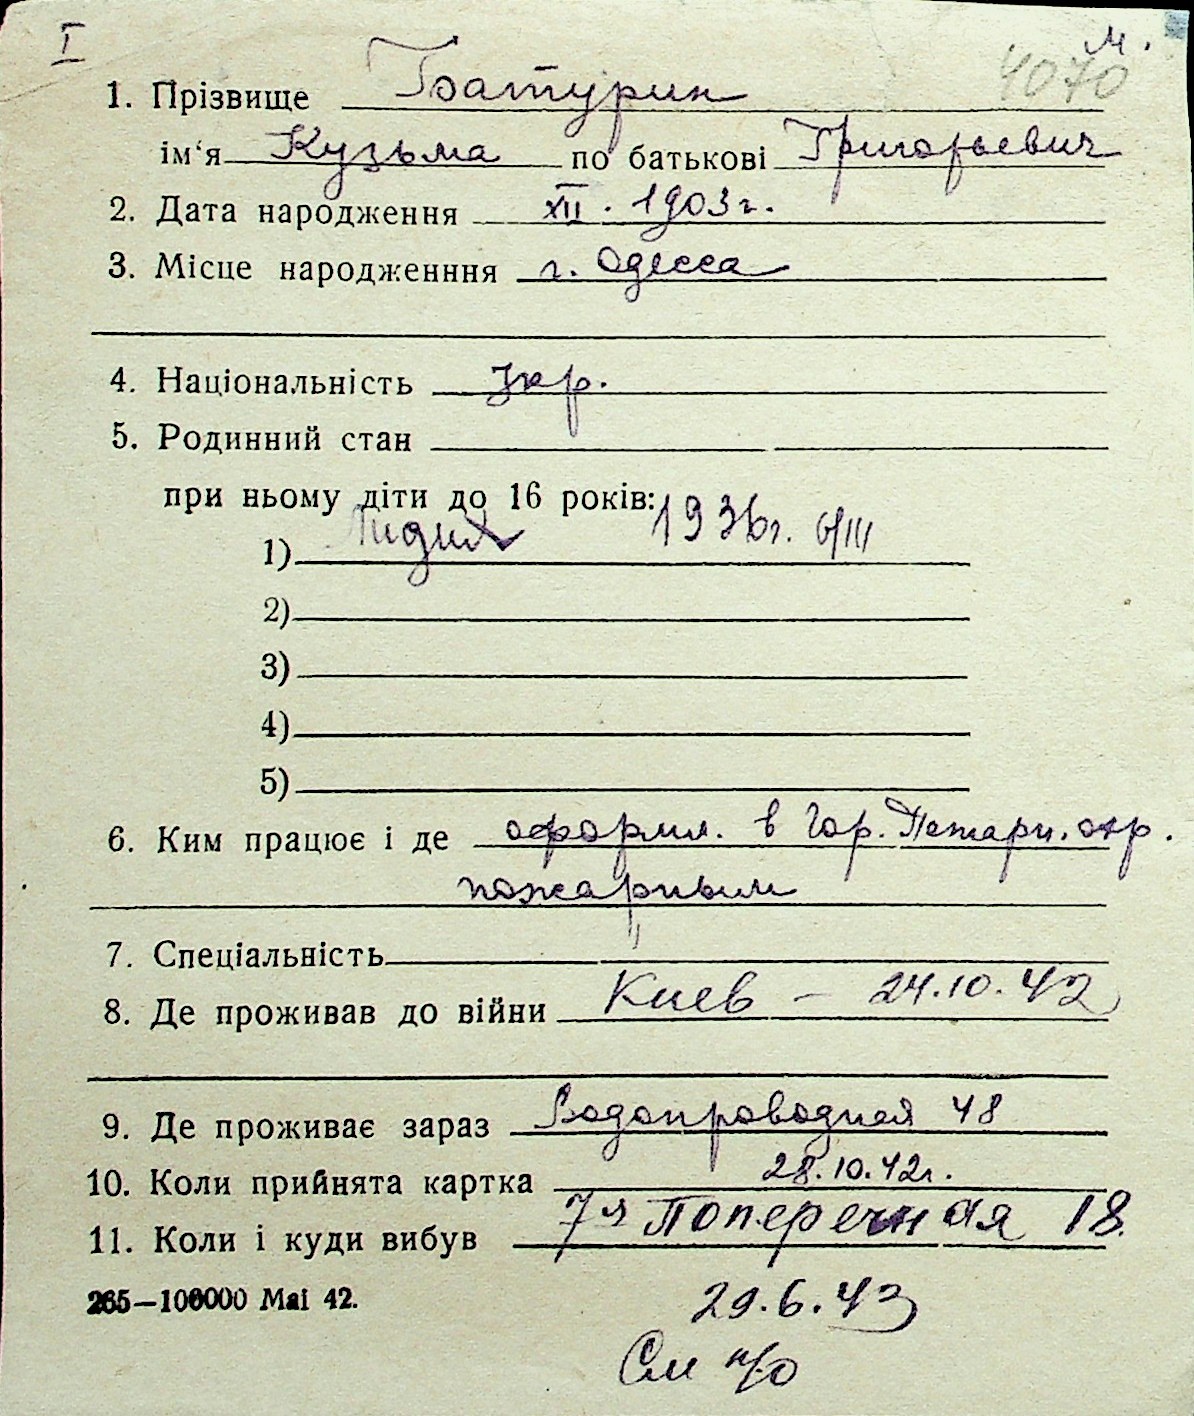 I
м.
4070
1. Прізвище Батурин
ім‘я Кузьма по батькові Григорьевич
2. Дата народження XII. 1903 г.
3. Місце народженння г. Одесса
4. Національність укр.
5. Родинний стан
при ньому діти до 16 років:
1) Лидия 1936г.
2)
3)
4)
5)
6. Ким працює і де оформл. в Гор. Пожарн. охр.
пожарным
7. Спеціальність "
8. Де проживав до війни Киев – 24.10.42
9. Де проживає зараз Водопроводная 48
10. Коли прийнята картка 28.10.42г.
11. Коли і куди вибув 7я Поперечная 18.
265—100000 Mai 42.
29.6.43
См н/о